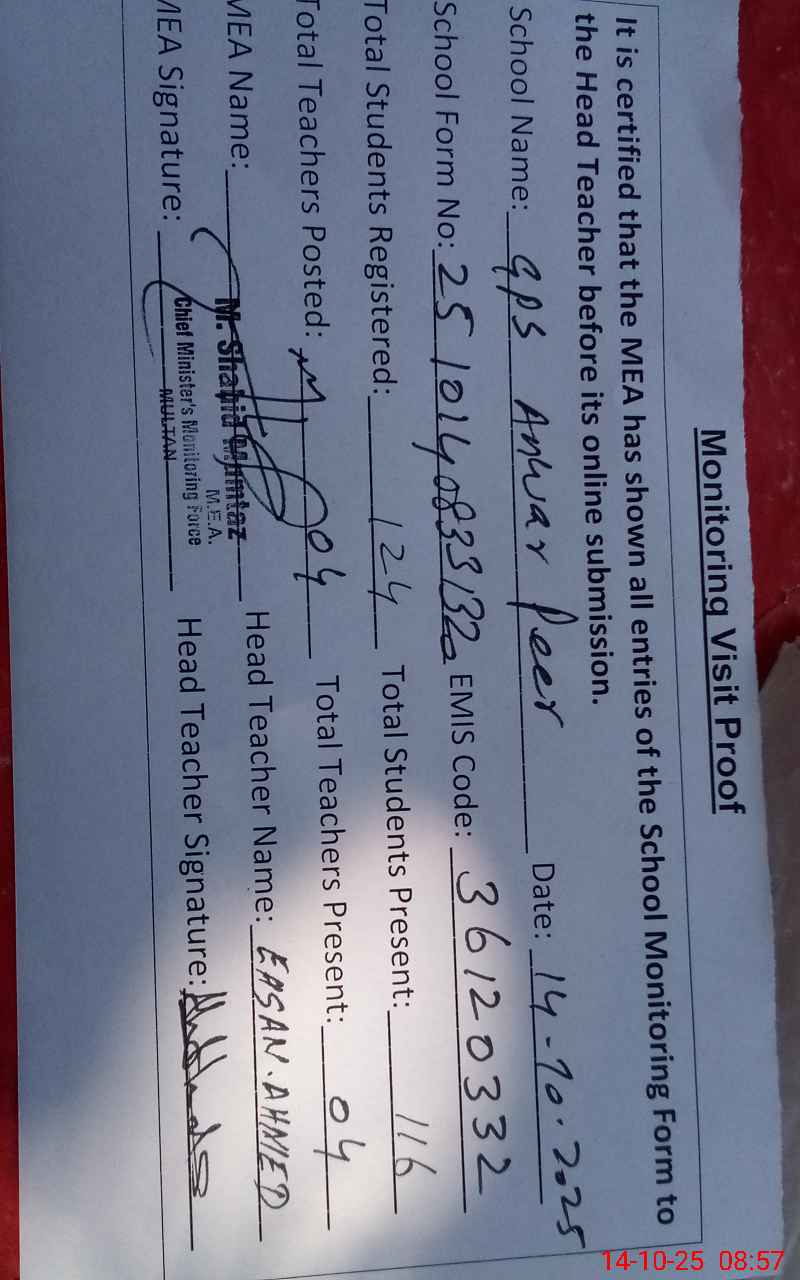 Monitoring Visit Proof
It is certified that the MEA has shown all entries of the School Monitoring Form to
the Head Teacher before its online submission.
School Name: GPS Anwar Peer Date: 14-10-2025
School Form No: EMIS Code: 36120332
Total Students Registered: 124 Total Students Present: 116
Total Teachers Posted: 04 Total Teachers Present: 04
MEA Name: M. Shahid Mumtaz Head Teacher Name: EASAN. AHMED
M.E.A.
MEA Signature: Chief Minister's Monitoring Force Head Teacher Signature:
MULTAN
14-10-25 08:57